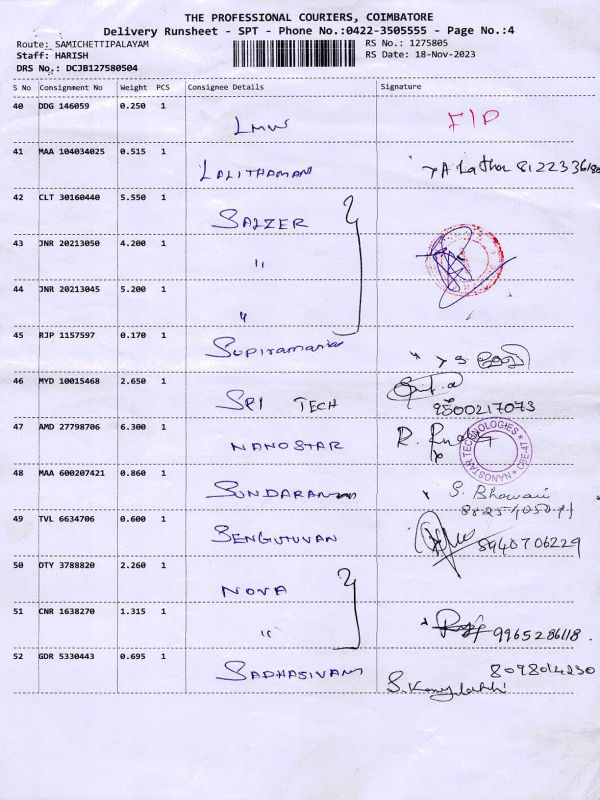 THE PROFESSIONAL COURIERS, COIMBATORE
Delivery Runsheet - SPT - Phone No.:0422-3505555 - Page No.:4
Route: SAMICHETTIPALAYAM
RS No.: 1275805
Staff: HARISH
RS Date: 18-Nov-2023
DRS No.: DCJB127580504
S No Consignment No Weight PCS Consignee Details Signature
40 DDG 146059 0.250 1 LMW F/P
41 MAA 104034025 0.515 1 LALITHAMANI A Latha
42 CLT 30160440 5.550 1 SALZER
43 JNR 20213050 4.200 1 "
44 JNR 20213045 5.200 1 "
45 RJP 1157597 0.170 1
46 MYD 10015468 2.650 1 SRI TECH 9500217073
47 AMD 27798706 6.300 1 NANOSTAR NANOSTAR TECHNOLOGIES CBE-47
48 MAA 600207421 0.860 1 S. Bhavani
49 TVL 6634706 0.600 1 SENGUTUVAN 8940706229
50 DTY 3788820 2.260 1 NOVA
51 CNR 1638270 1.315 1 " 9965286118.
52 GDR 5330443 0.695 1 SADHASIVAM 8098014230